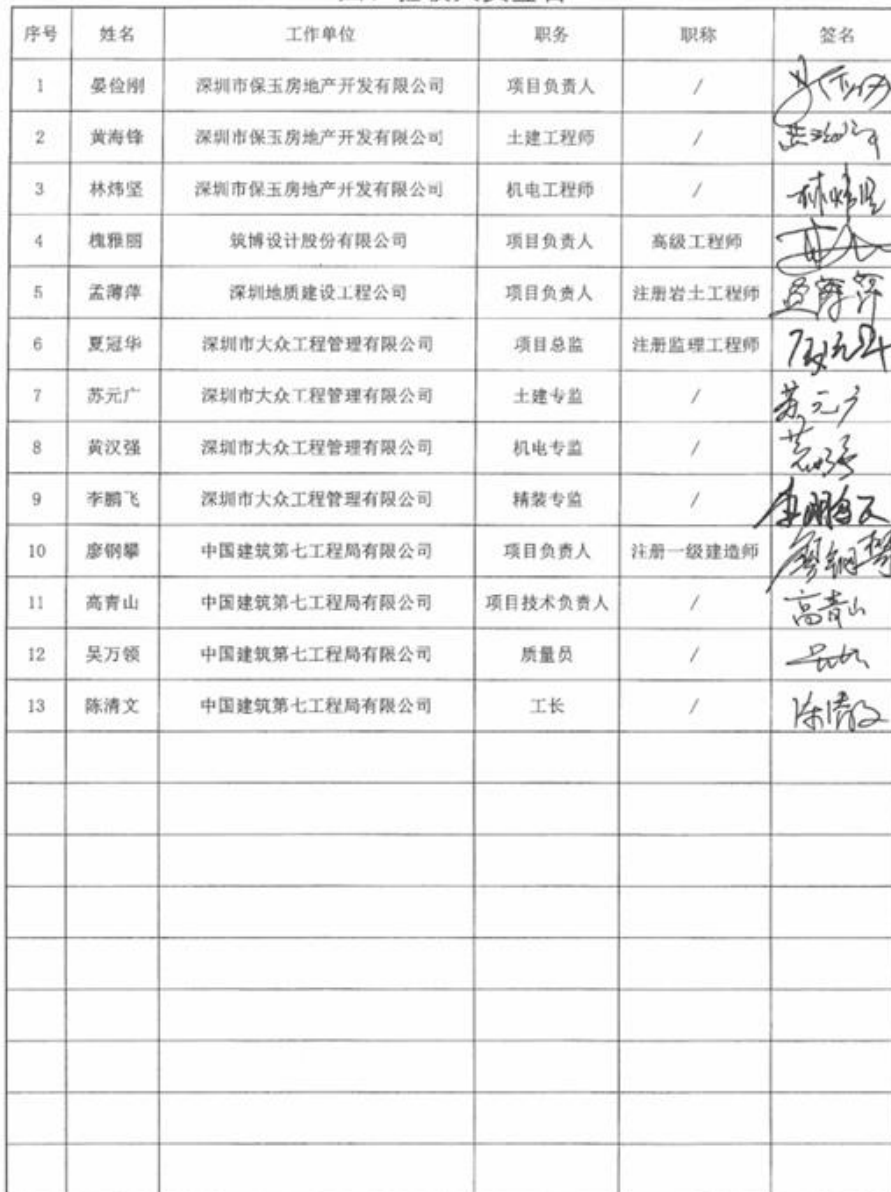 序号 姓名 工作单位 职务 职称 签名
1 晏俭刚 深圳市保玉房地产开发有限公司 项目负责人 /
2 黄海锋 深圳市保玉房地产开发有限公司 土建工程师 /
3 林炜坚 深圳市保玉房地产开发有限公司 机电工程师 /
4 槐雅丽 筑博设计股份有限公司 项目负责人 高级工程师
5 孟薄萍 深圳地质建设工程公司 项目负责人 注册岩土工程师 孟薄萍
6 夏冠华 深圳市大众工程管理有限公司 项目总监 注册监理工程师
7 苏元广 深圳市大众工程管理有限公司 土建专监 / 苏元广
8 黄汉强 深圳市大众工程管理有限公司 机电专监 /
9 李鹏飞 深圳市大众工程管理有限公司 精装专监 / 李鹏飞
10 廖钢攀 中国建筑第七工程局有限公司 项目负责人 注册一级建造师 廖钢攀
11 高青山 中国建筑第七工程局有限公司 项目技术负责人 / 高青山
12 吴万领 中国建筑第七工程局有限公司 质量员 /
13 陈清文 中国建筑第七工程局有限公司 工长 / 陈清文